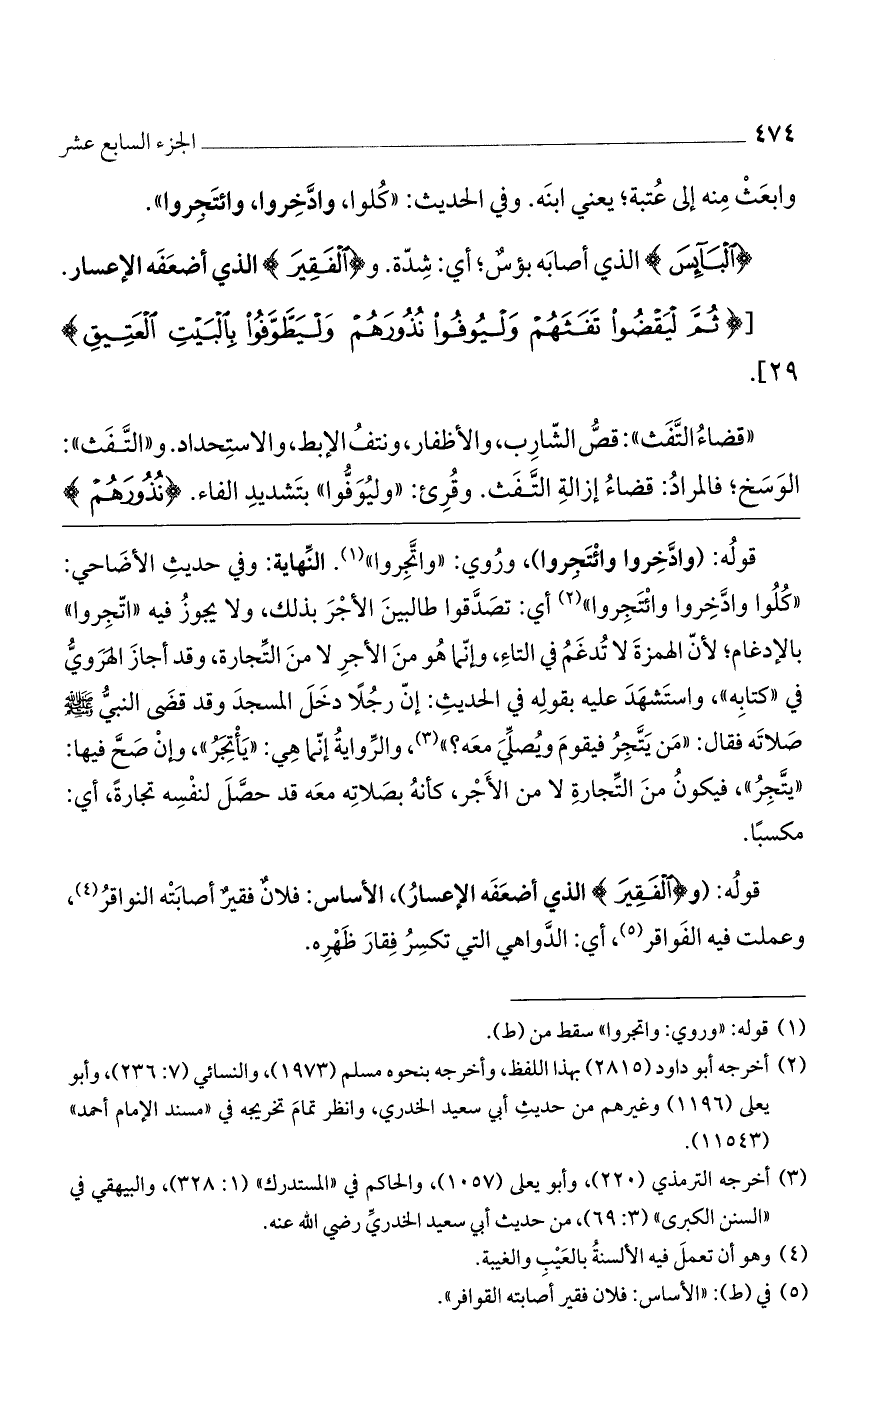 ٤٧٤ الجزء السابع عشر
وابعَثْ مِنه إلى عُتبة؛ يعني ابنَه. وفي الحديث: «كُلوا، وادَّخِروا، وائتَجِروا».
﴿ٱلْبَآئِسَ﴾ الذي أصابَه بؤسٌ؛ أي: شِدّة. و﴿ٱلْفَقِيرَ﴾ الذي أضعَفَه الإعسار.
[﴿ثُمَّ لْيَقْضُواْ تَفَثَهُمْ وَلْيُوفُواْ نُذُورَهُمْ وَلْيَطَّوَّفُواْ بِٱلْبَيْتِ ٱلْعَتِيقِ﴾
٢٩].
«قضاءُ التَّفَث»: قصُّ الشّارِب، والأظفار، ونتفُ الإبط، والاستِحداد. و«التَّفَث»:
الوَسَخ؛ فالمرادُ: قضاءُ إزالةِ التَّفَث. وقُرِئ: «وليُوَفُّوا» بتَشديدِ الفاء. ﴿نُذُورَهُمْ﴾
قولُه: (وادَّخِروا وائْتَجِروا)، ورُوي: «واتَّجِروا»(١). النِّهاية: وفي حديثِ الأضَاحي:
«كُلُوا وادَّخِروا وائْتَجِروا»(٢) أي: تصَدَّقوا طالبينَ الأجْرَ بذلك، ولا يجوزُ فيه «اتّجِروا»
بالإدغام؛ لأنّ الهمزةَ لا تُدغَمُ في التاءِ، وإنّما هُو منَ الأجرِ لا منَ التِّجارة، وقد أجازَ الهَرَويُّ
في «كتابِه»، واستَشهَدَ عليه بقولِه في الحديثِ: إنّ رجُلًا دخَلَ المسجدَ وقد قضَى النبيُّ ﷺ
صَلاتَه فقال: «مَن يَتَّجِرُ فيقومَ ويُصلِّيَ معَه؟»(٣)، والرِّوايةُ إنّما هِي: «يَأْتَجِرُ»، وإنْ صَحَّ فيها:
«يتَّجِرُ»، فيكونُ منَ التِّجارةِ لا من الأَجْر، كأنهُ بصَلاتِه معَه قد حصَّلَ لنفْسِه تجارةً، أي:
مكسبًا.
قولُه: (و﴿ٱلْفَقِيرَ﴾ الذي أضعَفَه الإعسارُ)، الأساس: فلانٌ فقيرٌ أصابَتْه النواقرُ(٤)،
وعملت فيه الفَواقر(٥)، أي: الدَّواهي التي تكسِرُ فِقارَ ظَهْرِه.
(١) قوله: «وروي: واتجروا» سقط من (ط).
(٢) أخرجه أبو داود (٢٨١٥) بهذا اللفظ، وأخرجه بنحوه مسلم (١٩٧٣)، والنسائي (٧: ٢٣٦)، وأبو
يعلى (١١٩٦) وغيرهم من حديثِ أبي سعيد الخدري، وانظر تمامَ تخريجه في «مسند الإمام أحمد»
(١١٥٤٣).
(٣) أخرجه الترمذي (٢٢٠)، وأبو يعلى (١٠٥٧)، والحاكم في «المستدرك» (١: ٣٢٨)، والبيهقي في
«السنن الكبرى» (٣: ٦٩)، من حديث أبي سعيد الخدريِّ رضي الله عنه.
(٤) وهو أن تعملَ فيه الألسنةُ بالعَيْبِ والغيبة.
(٥) في (ط): «الأساس: فلان فقير أصابته القوافر».